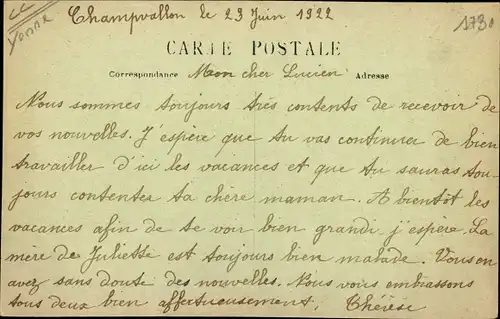 Yonne
Champvallon le 23 Juin 1922
1730
CARTE POSTALE
Correspondance Mon cher Lucien Adresse
Nous sommes toujours très contents de recevoir de
vos nouvelles. J'espère que tu vas continuer de bien
travailler d'ici les vacances et que tu sauras tou-
jours contenter ta chère maman. A bientôt les
vacances afin de te voir bien grandi j'espère. La
mère de Juliette est toujours bien malade. Vous en
avez sans doute des nouvelles. Nous vous embrassons
tous deux bien affectueusement. Thérèse